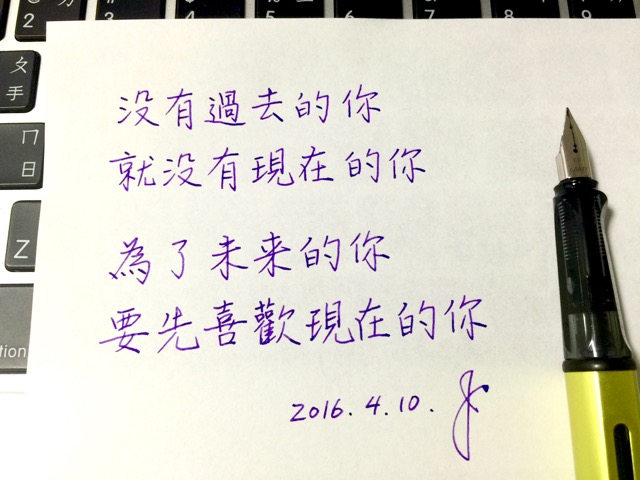 2
3
4
5
6
7
8
9
ㄆ
手
ㄇ
日
Z
tion
没有過去的你
就没有現在的你
為了未来的你
要先喜歡現在的你
2016.4.10.